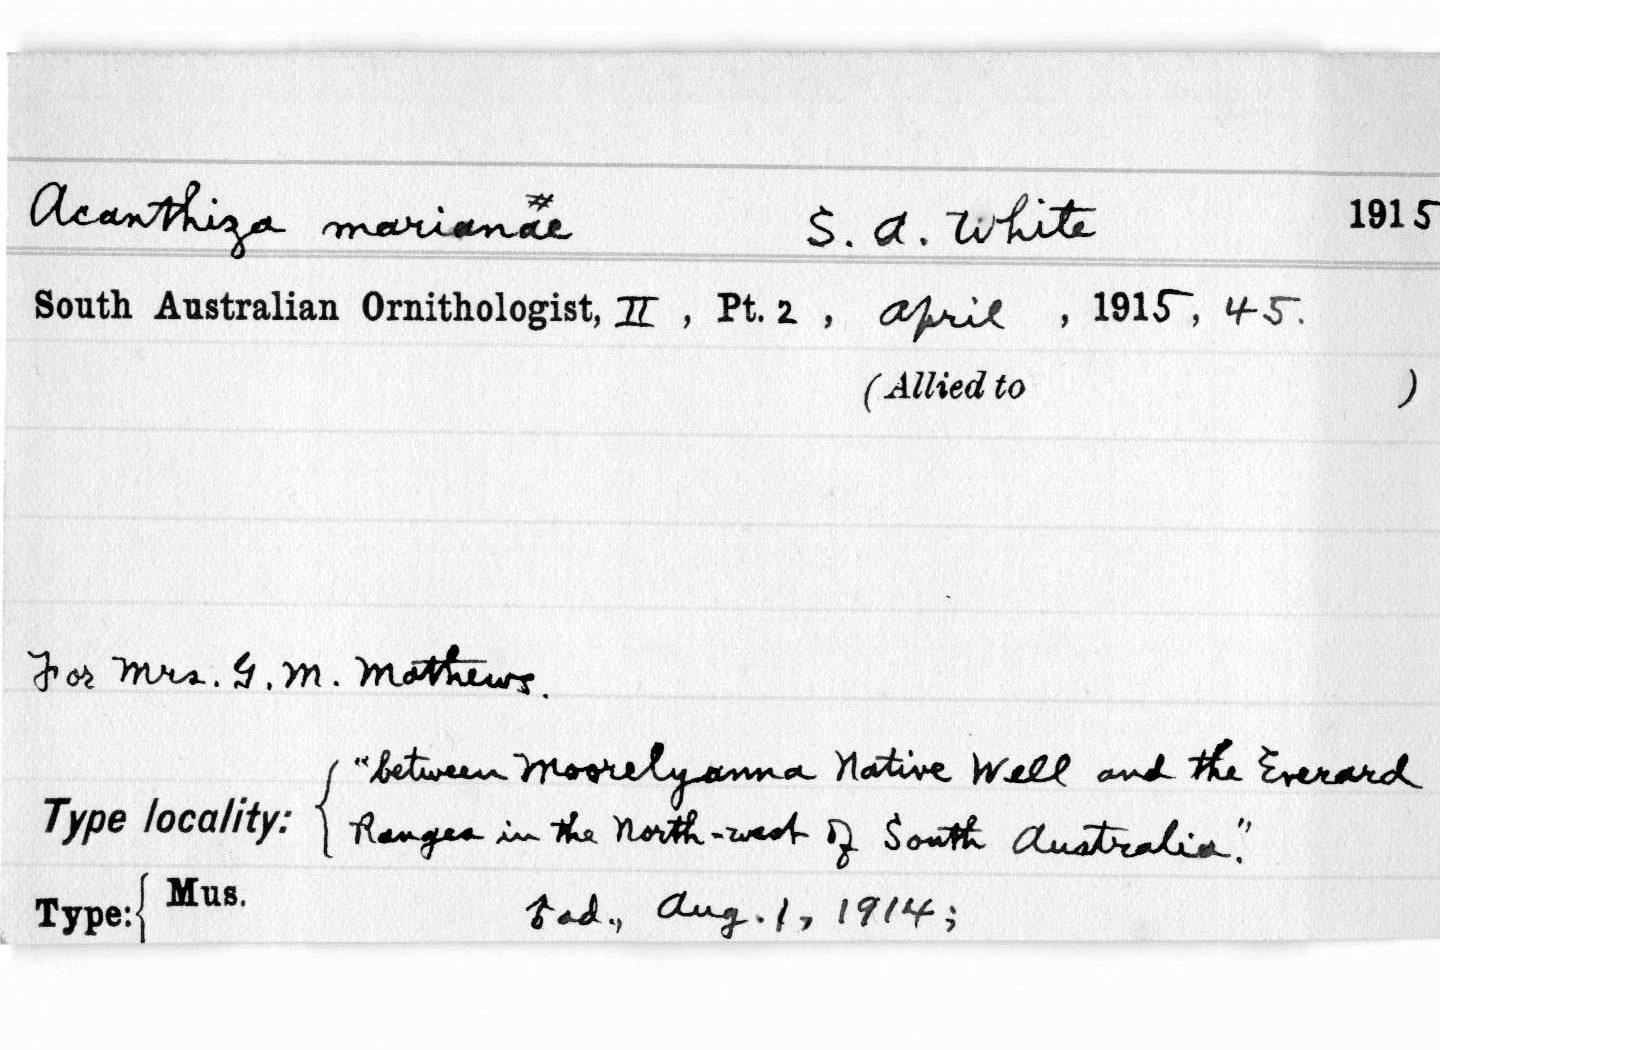 Acanthiza marianae # S. A. White 1915
South Australian Ornithologist, II, Pt. 2, April, 1915, 45.
(Allied to )
For Mrs. G. M. Mathews.
"between Moorelyanna Native Well and the Everard
Type locality: { Ranges in the North-west of South Australia."
Type: { Mus. ad., Aug. 1, 1914;